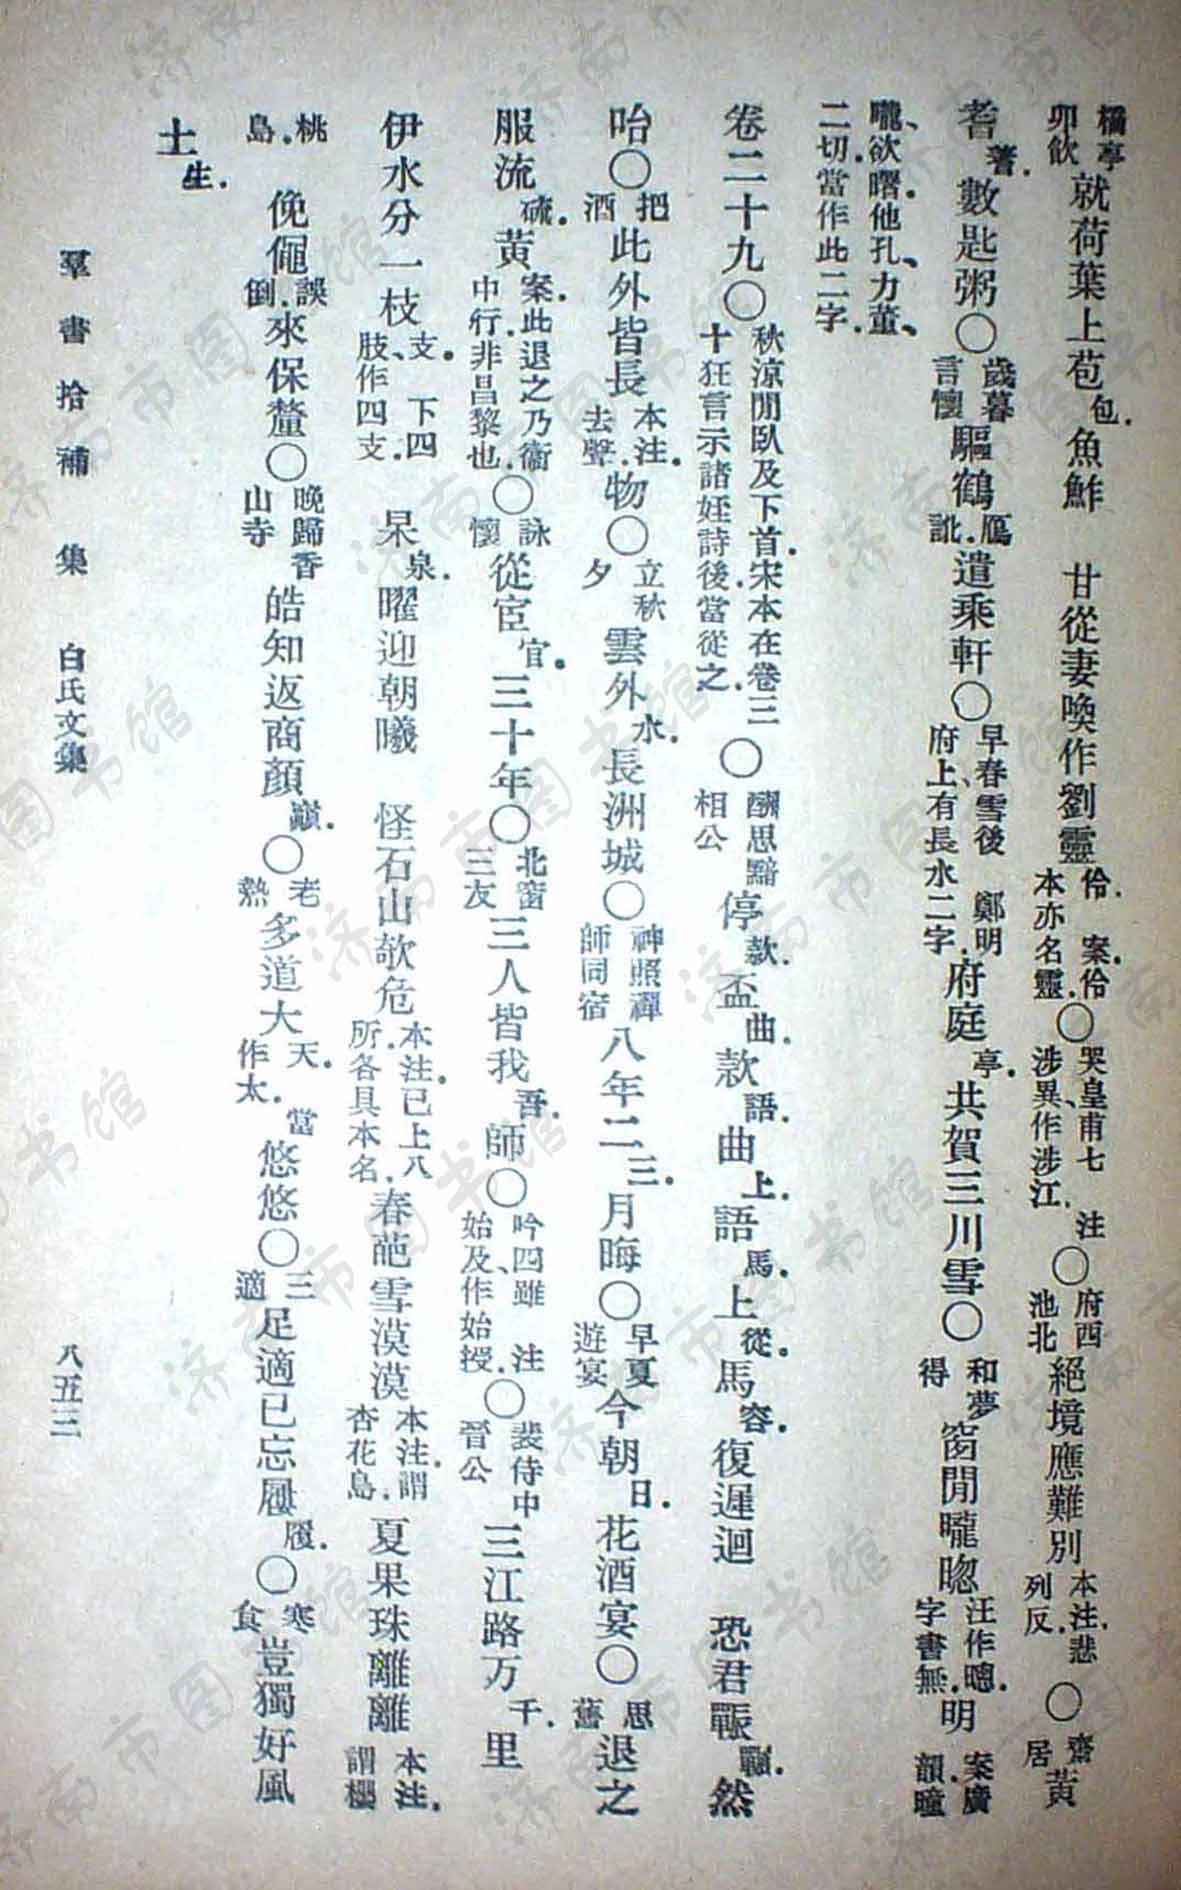 橘亭卯飲就荷葉上苞包魚鮓　甘從妻喚作劉靈伶案伶本亦名靈〇哭皇甫七注涉異作涉江〇府西池北絕境應難別本注悲列反〇齋居黃
耆蓍數匙粥〇歲暮言懷驅鶴鴈訛遣乘軒〇早春雪後鄭明府上有長水二字府庭亭共賀三川雪〇和夢得窗閒曨㫚汪作㬈字書無明案廣韻曈
曨欲曙他孔力董二切當作此二字
卷二十九〇秋涼閒臥及下首宋本在卷三十狂言示諸姪詩後當從之〇酬思黯相公停款盃曲款語曲上語馬上從馬容復遲迴　恐君䩄然
咍〇把酒此外皆長本注去聲物〇立秋夕雲外水長洲城〇神照禪師同宿八年二三月晦〇早夏遊宴今朝日花酒宴〇思舊退之
服流硫黃案此退之乃衞中行非昌黎也〇詠懷從宦官三十年〇北窗三友三人皆我吾師〇吟四雖注始及作始授〇裴侍中晉公三江路万千里
伊水分一枝支下四肢作四支杲泉曜迎朝曦　怪石山欹危本注已上八所各具本名春葩雪漠漠本注謂杏花島夏果珠離離本注謂櫻
桃島俛僶誤倒來保釐〇晚歸香山寺皓知返商顏巔〇老熱多道大天當作太悠悠〇三適足適已忘履屨〇寒食豈獨好風
土生
羣書拾補　集　白氏文集
八五三